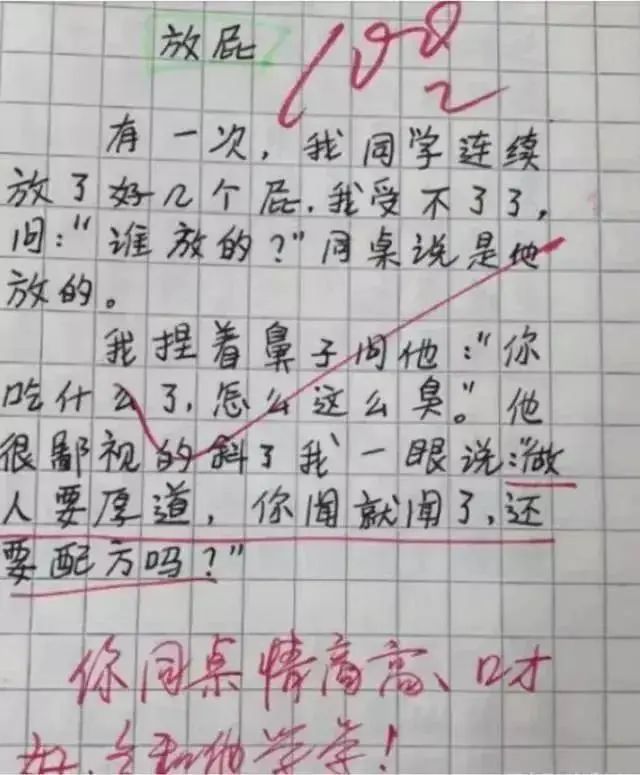 放屁
100
有一次，我同学连续
放了好几个屁.我受不了了，
问："谁放的？"同桌说是他
放的。
我捏着鼻子问他："你
吃什么了，怎么这么臭。"他
很鄙视的斜了我一眼说："做
人要厚道，你闻就闻了，还
要配方吗？"
你同桌情商高、口才
好，多和他学学！